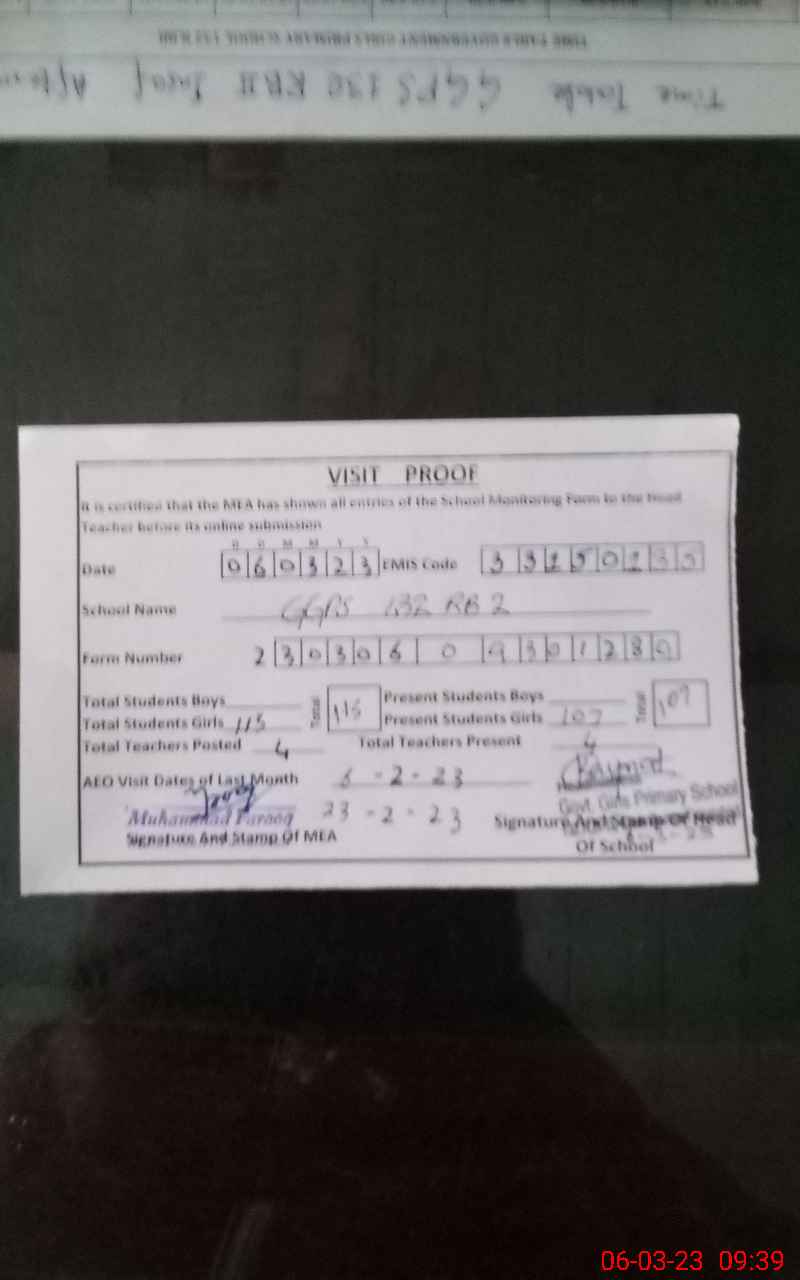 Time Table GGPS
VISIT PROOF
It is certified that the MEA has shown all entries of the School Monitoring Form to the Head
Teacher before its online submission
D D M M Y Y
Date 060323 EMIS Code
School Name GGPS 132 RB 2
Form Number 2 3 0 3 0 6 0 9 3 0 1 2 8 0
Total Students Boys Total 115 Present Students Boys Total 107
Total Students Girls 115 Present Students Girls 107
Total Teachers Posted 4 Total Teachers Present 4
AEO Visit Dates of Last Month -2-23
23-2-23
Muhammad Farooq
Govt. Girls Primary School
Signature And Stamp Of MEA Signature And Stamp Of Head
Of School
06-03-23 09:39